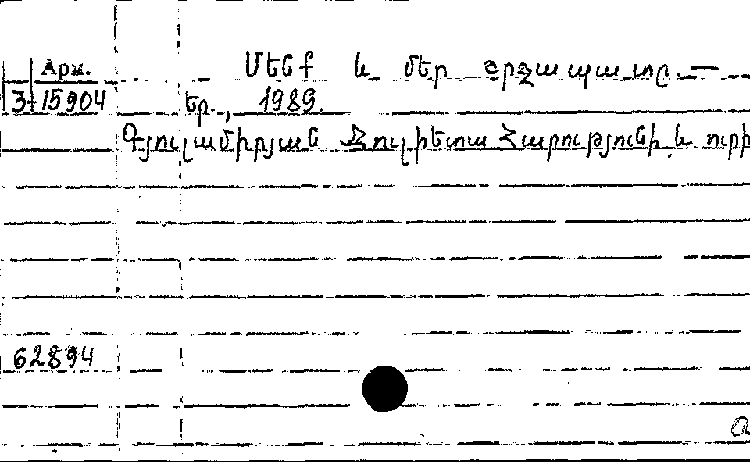 Արм.
Մենք և մեր շրջապատը.—
3+15904 Եր., 1989.
Գյուլամիրյան Ջուլիետա Հարությունի և ուրի
62894